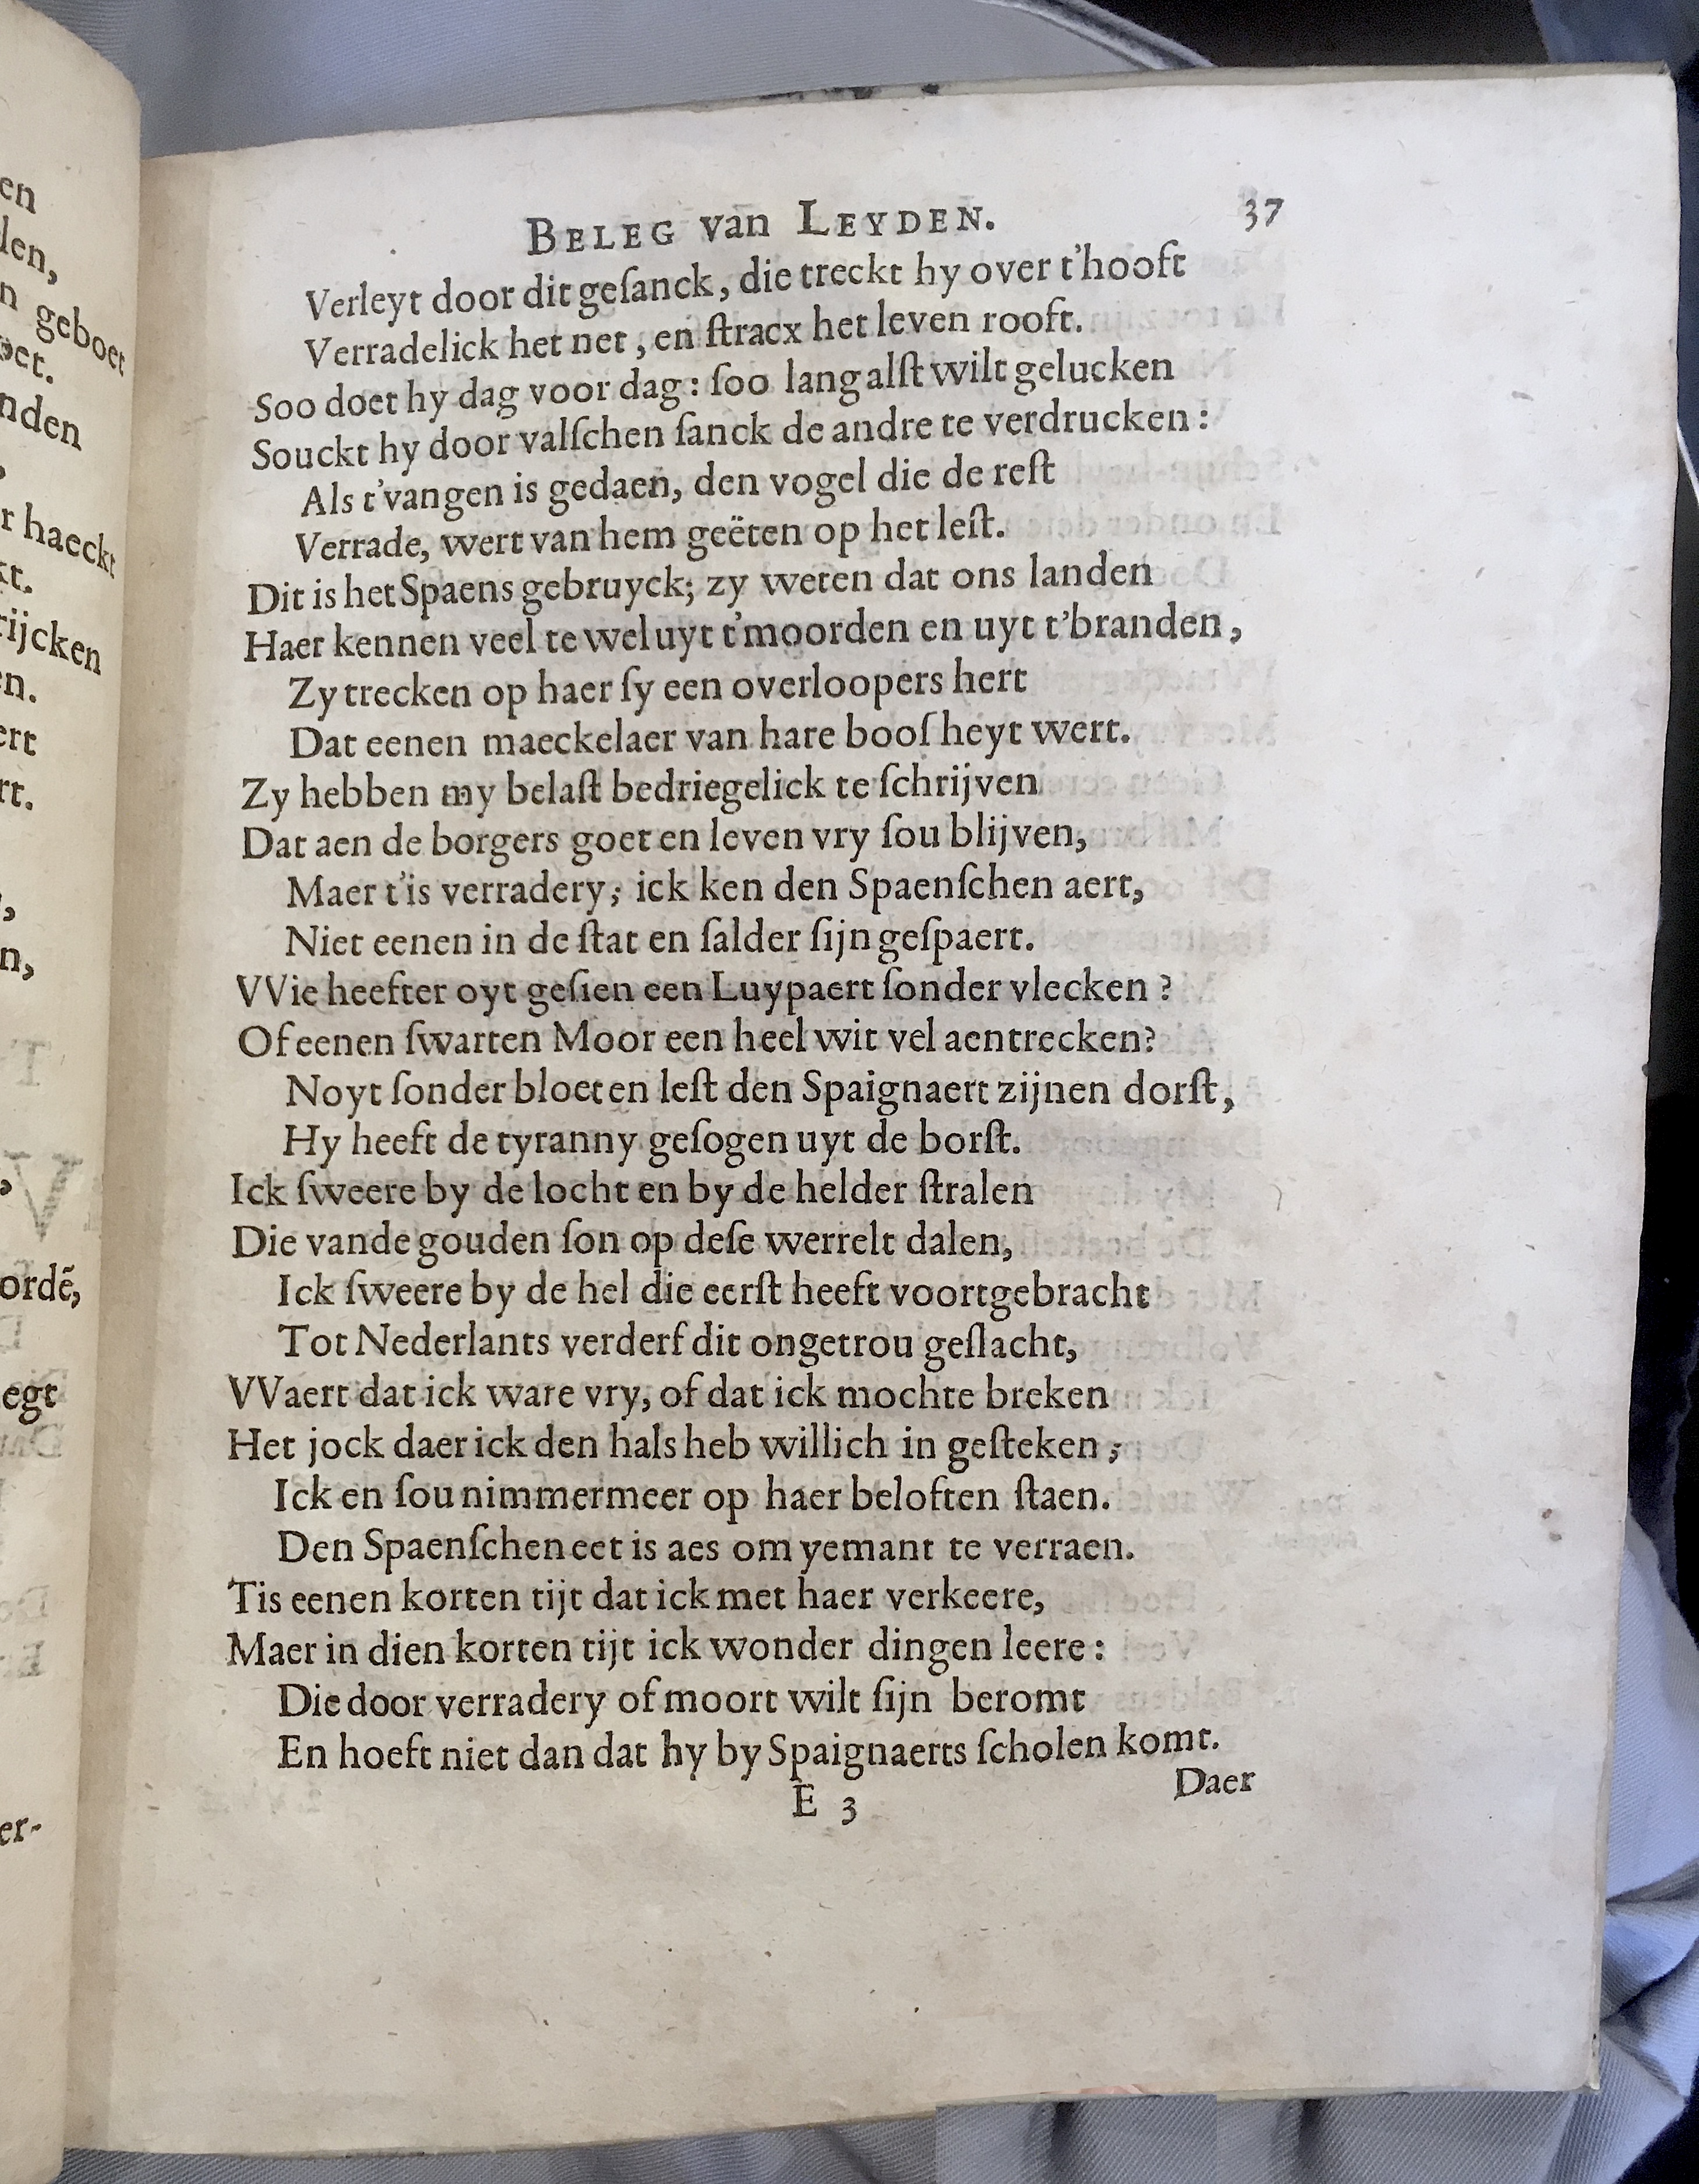 en
len,
n geboet
oet.
nden
r haeckt
kt.
rijcken
en.
ert
rt.
,
n,
,
ordẽ,
egt
er-
BELEG van LEYDEN. 37
Verleyt door dit geſanck, die treckt hy over t'hooft
Verradelick het net, en ſtracx het leven rooft.
Soo doet hy dag voor dag: ſoo lang alſt wilt gelucken
Souckt hy door valſchen ſanck de andre te verdrucken:
Als t'vangen is gedaen, den vogel die de reſt
Verrade, wert van hem geëten op het leſt.
Dit is het Spaens gebruyck; zy weten dat ons landen
Haer kennen veel te wel uyt t'moorden en uyt t'branden,
Zy trecken op haer ſy een overloopers hert
Dat eenen maeckelaer van hare booſheyt wert.
Zy hebben my belaſt bedriegelick te ſchrijven
Dat aen de borgers goet en leven vry ſou blijven,
Maer t'is verradery; ick ken den Spaenſchen aert,
Niet eenen in de ſtat en ſalder ſijn geſpaert.
VVie heefter oyt geſien een Luypaert ſonder vlecken?
Of eenen ſwarten Moor een heel wit vel aentrecken?
Noyt ſonder bloet en leſt den Spaignaert zijnen dorſt,
Hy heeft de tyranny geſogen uyt de borſt.
Ick ſweere by de locht en by de helder ſtralen
Die vande gouden ſon op deſe werrelt dalen,
Ick ſweere by de hel die eerſt heeft voortgebracht
Tot Nederlants verderf dit ongetrou geſlacht,
VVaert dat ick ware vry, of dat ick mochte breken
Het jock daer ick den hals heb willich in geſteken;
Ick en ſou nimmermeer op haer beloften ſtaen.
Den Spaenſchen eet is aes om yemant te verraen.
Tis eenen korten tijt dat ick met haer verkeere,
Maer in dien korten tijt ick wonder dingen leere:
Die door verradery of moort wilt ſijn beromt
En hoeft niet dan dat hy by Spaignaerts ſcholen komt.
E 3 Daer